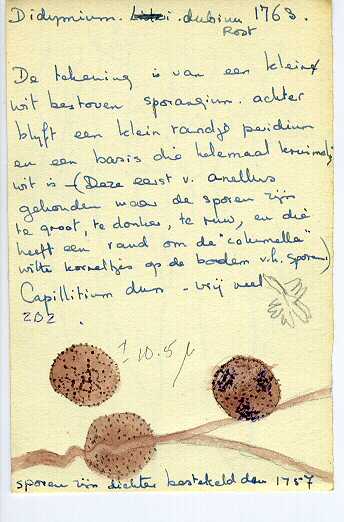 Didymium. dubium 1763.
Rost
De tekening is van een kleine
wit bestoven sporangium. achter
blyft een klein randje peridium
en een basis die helemaal kruimelig
wit is - (Deze eerst v. anellus
gehouden maar de sporen zijn
te groot, te donker, te ruw, en die
heeft een rand om de "columella"
witte korreltjes op de bodem v.h. sporan.)
Capillitium dun - vrij veel
202.
± 10.5 µ
sporen zijn dichter bestekeld dan 1757